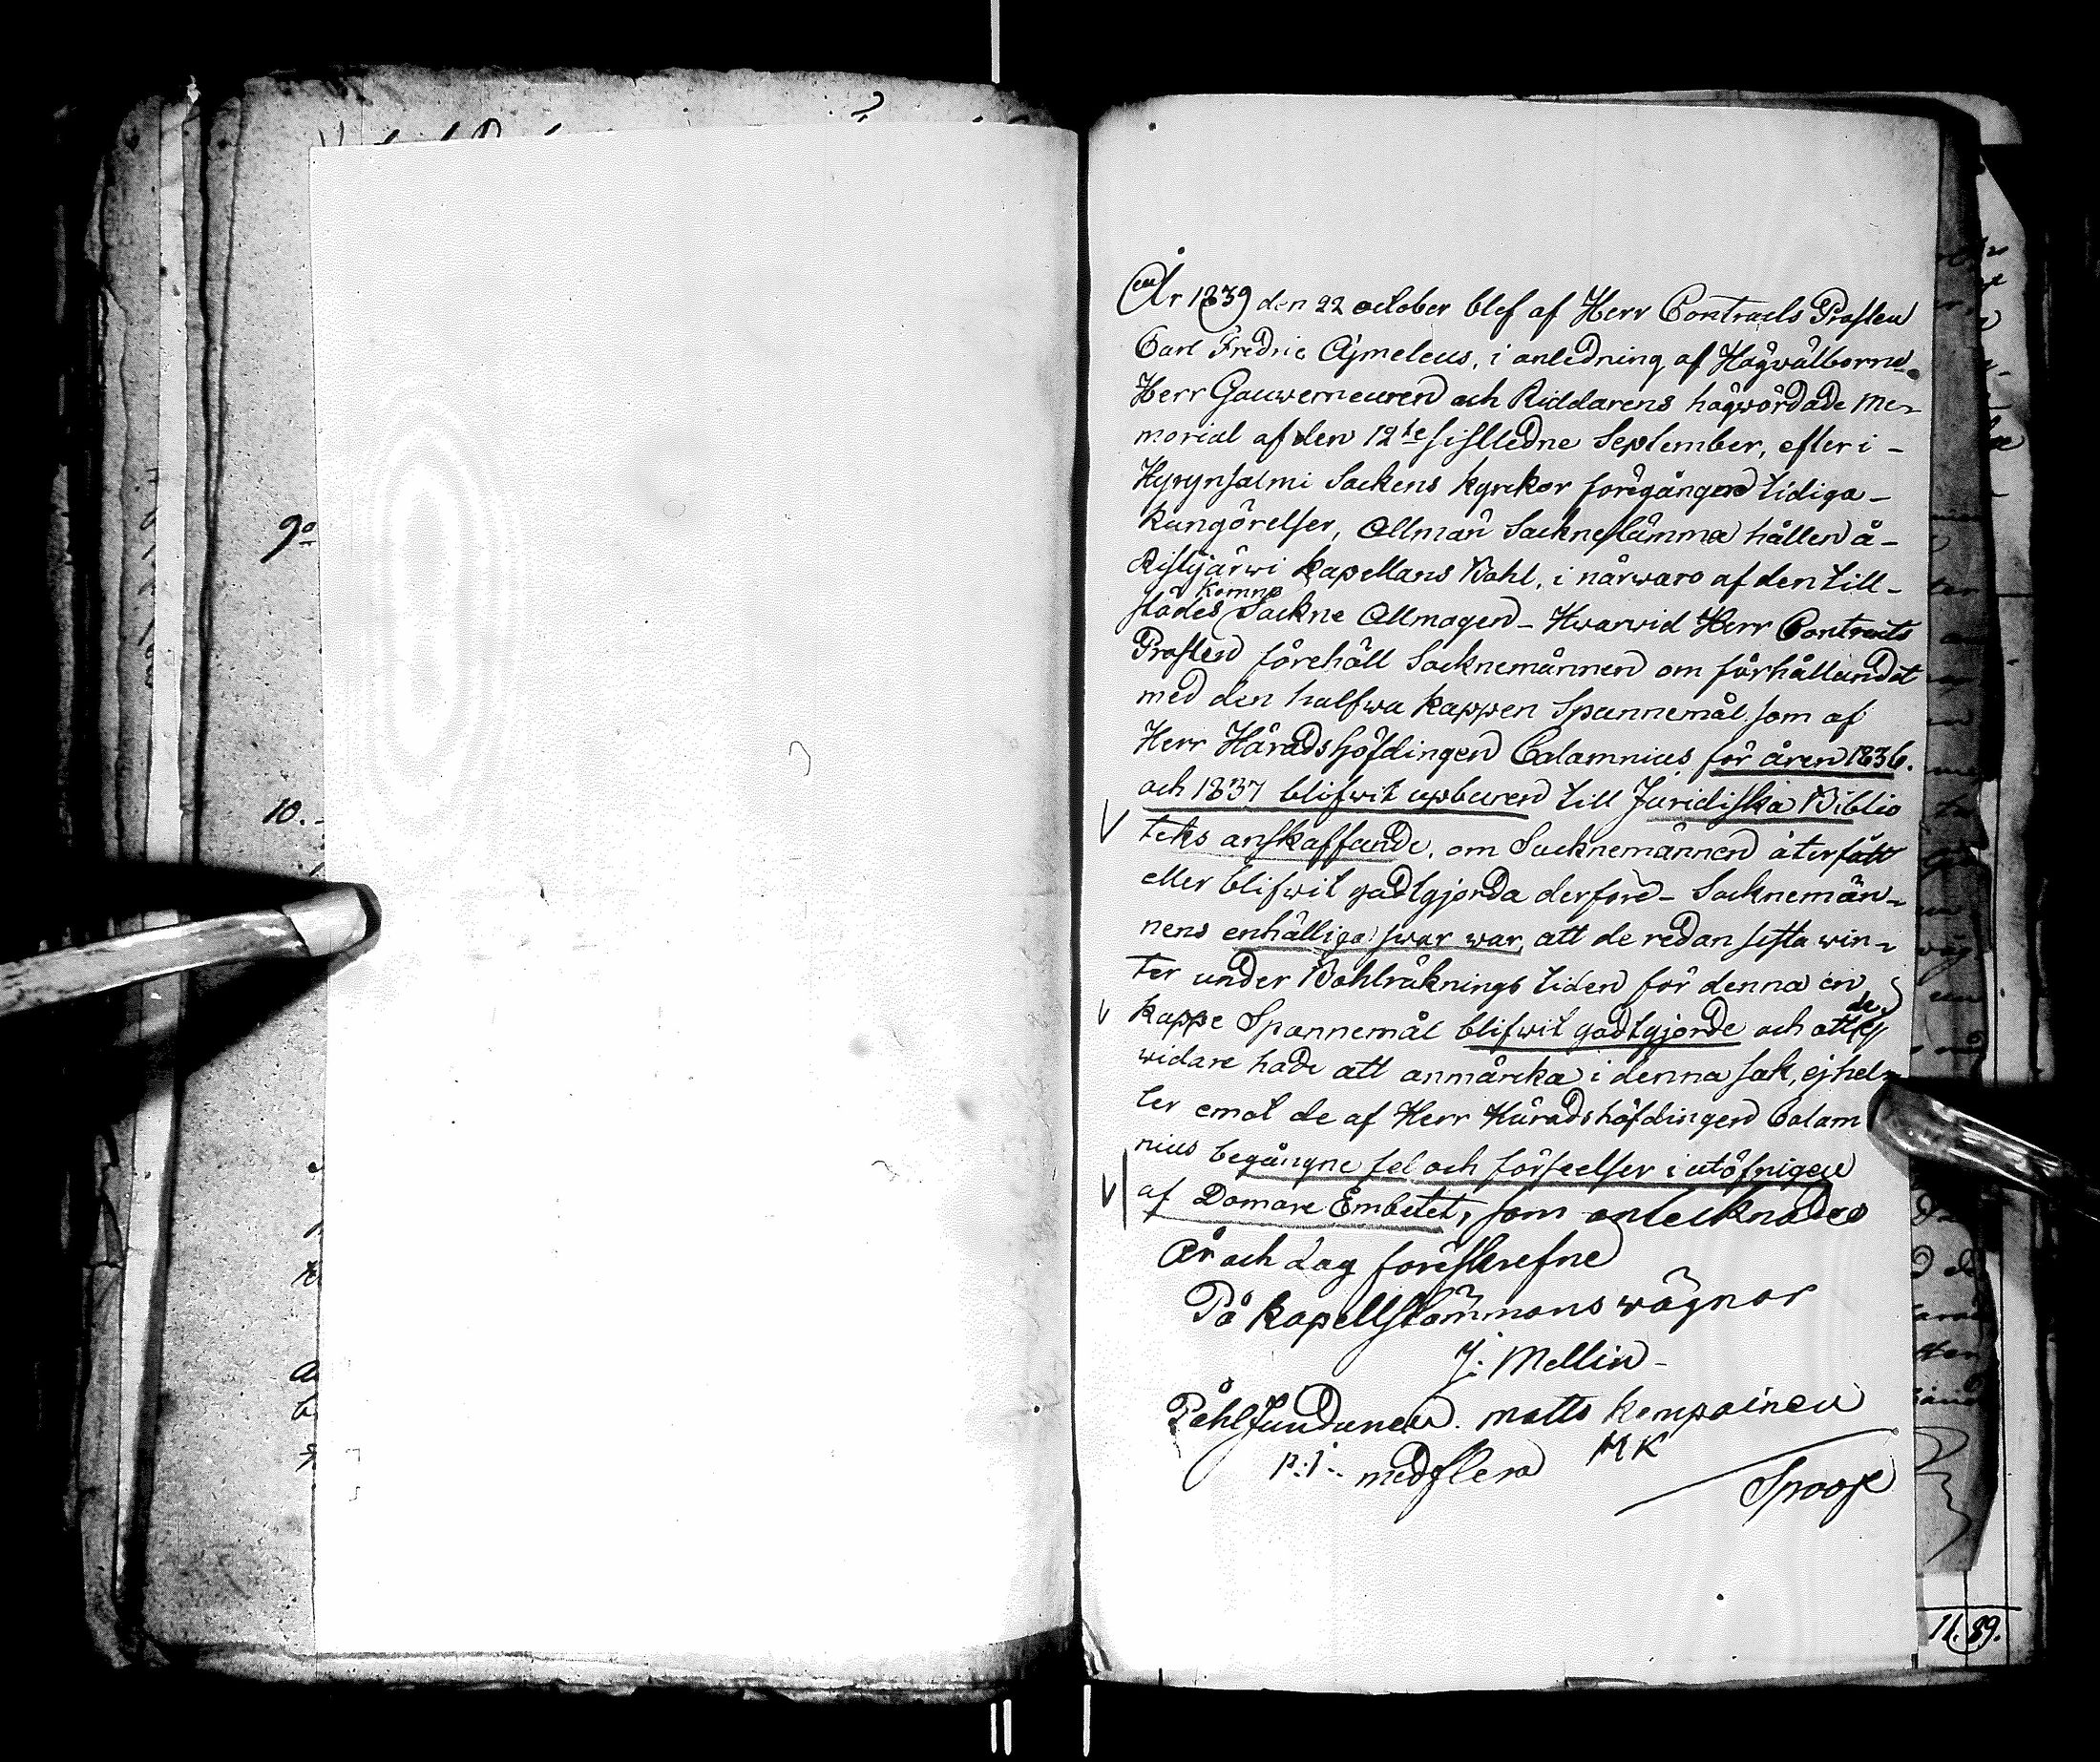 9o
10.
År 1839 den 22 october blef af Herr Contracts Prosten
Carl Fredric Ajmeleus, i anledning af Högwälborne
Herr Gouwerneuren och Riddarens högwördade Me-
morial af den 12te sistledne September, efter i -
Hyrynsalmi Sockens kyrkor föregången tidiga -
kungörelser, Allmän Sockneståmma hållen å -
Ristijärwi kapellans Bohl, i närwaro af den till -
städes komne Sockne Allmogen - Hwarwid Herr Contracts
Prosten förehöll Socknemännen om förhållandet
med den halfwa kappen Spannemål som af
Herr Häradshöfdingen Calamnius för åren 1836.
och 1837 blifwit upburen till Juridiska Biblio
teks anskaffande, om Socknemännen återfått
eller blifwit godtgjorda derföre - Socknemän-
nens enhälliga swar war, att de redan sista win-
ter under Bohlräknings tiden för denna en
kappe Spannemål blifwit godtgjorde och att de ej
widare hade att anmärka i denna sak, ej hel-
ler emot de af Herr Häradshöfdingen Calam
nius begångne fel och förseelser i utöfningen
af Domare Embetet, som antecknades
År och dag föreskrefne
På kapellstämmans wägnar
J. Mellin -
Påhl Juudunen. Matts kempainen
P. J. medflera MK
Snoof
11. 89.